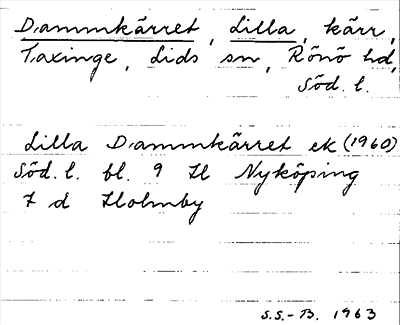 Dammkärret, Lilla, kärr,
Taxinge, Lids sn, Rönö hd,
Söd. l.
Lilla Dammkärret ek (1960)
Söd. l. bl. 9 H Nyköping
7 d Holmby
S.S.-B. 1963